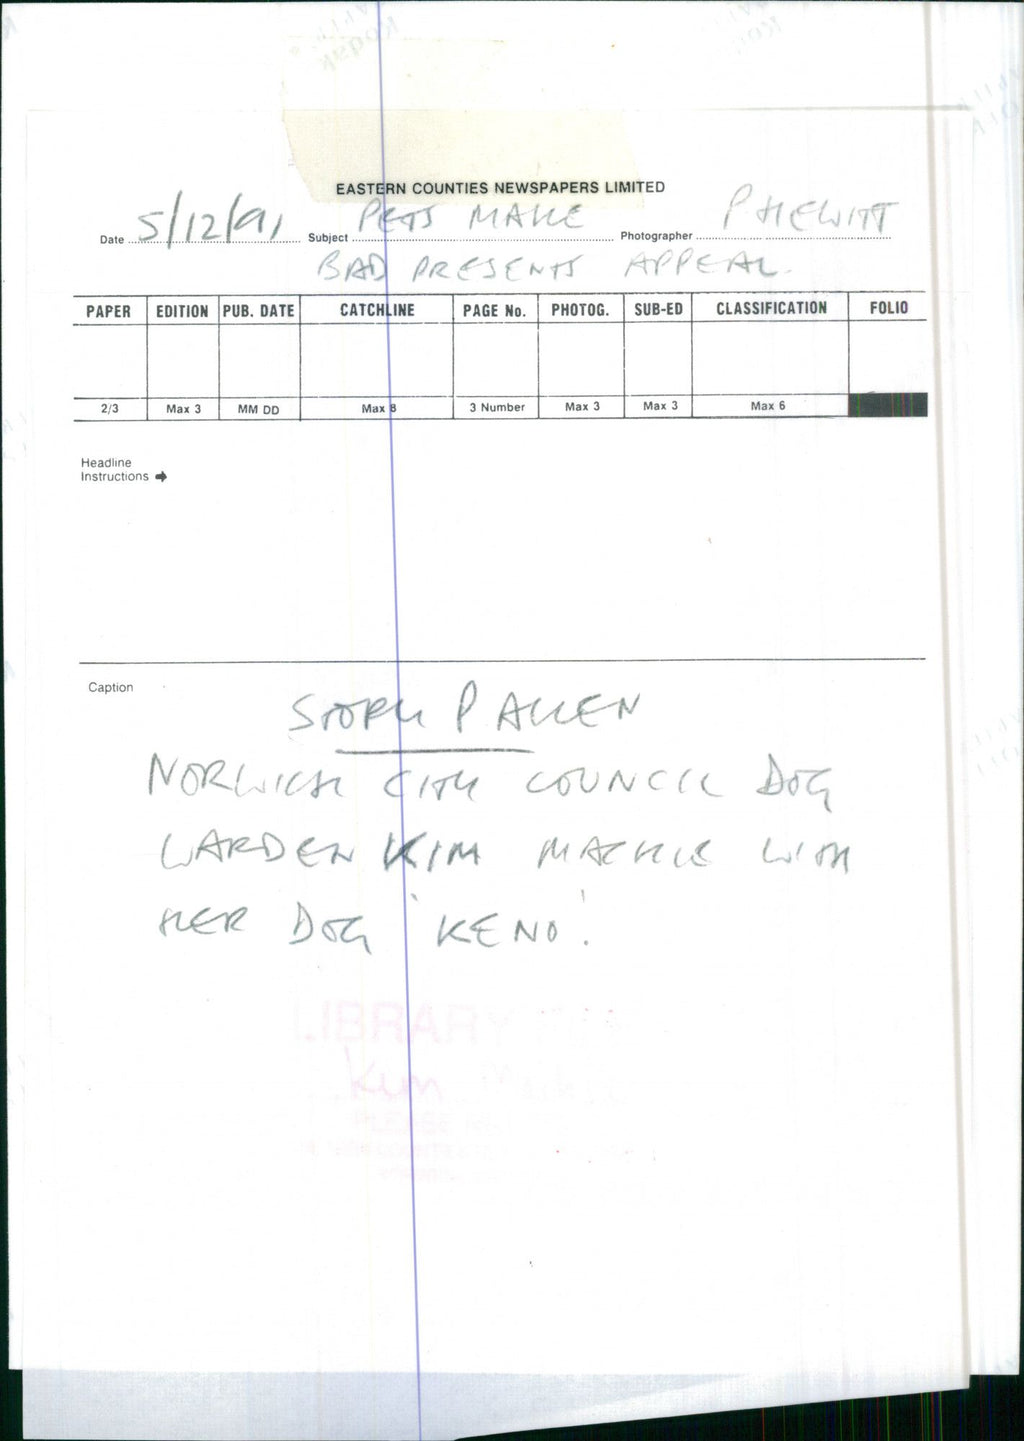 EASTERN COUNTIES NEWSPAPERS LIMITED
Date 5/12/91 Subject PETS MAKE Photographer P HEWITT
BAD PRESENTS APPEAL.
PAPER EDITION PUB. DATE CATCHLINE PAGE No. PHOTOG. SUB-ED CLASSIFICATION FOLIO
2/3 Max 3 MM DD Max 8 3 Number Max 3 Max 3 Max 6
Headline
Instructions
Caption
STORY P ALLEN
NORWICH CITY COUNCIL DOG
WARDEN KIM MACKIE WITH
HER DOG 'KENO'.
LIBRARY
Kim
PLEASE